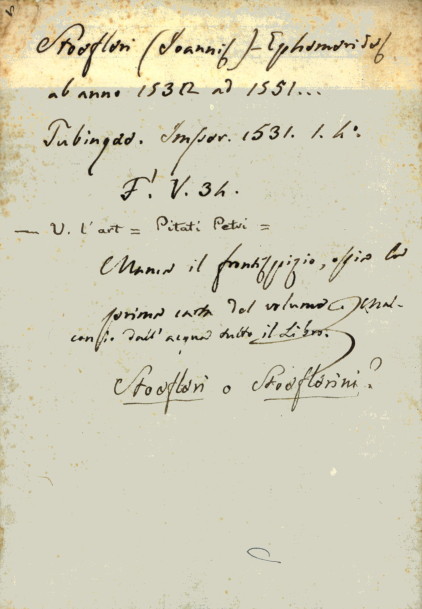 Stoefleri (Joannis) - Ephemerides
ab anno 1532 ad 1551...
Tubingae. Impser. 1531. 1. 4°.
F.' V. 34.
— V. l'art = Pitati Petri =
Manca il frontispizio, ossia la
prima carta del volume e mal-
concio dall'acqua tutto il Libro.
Stoefleri o Stoeflerini?